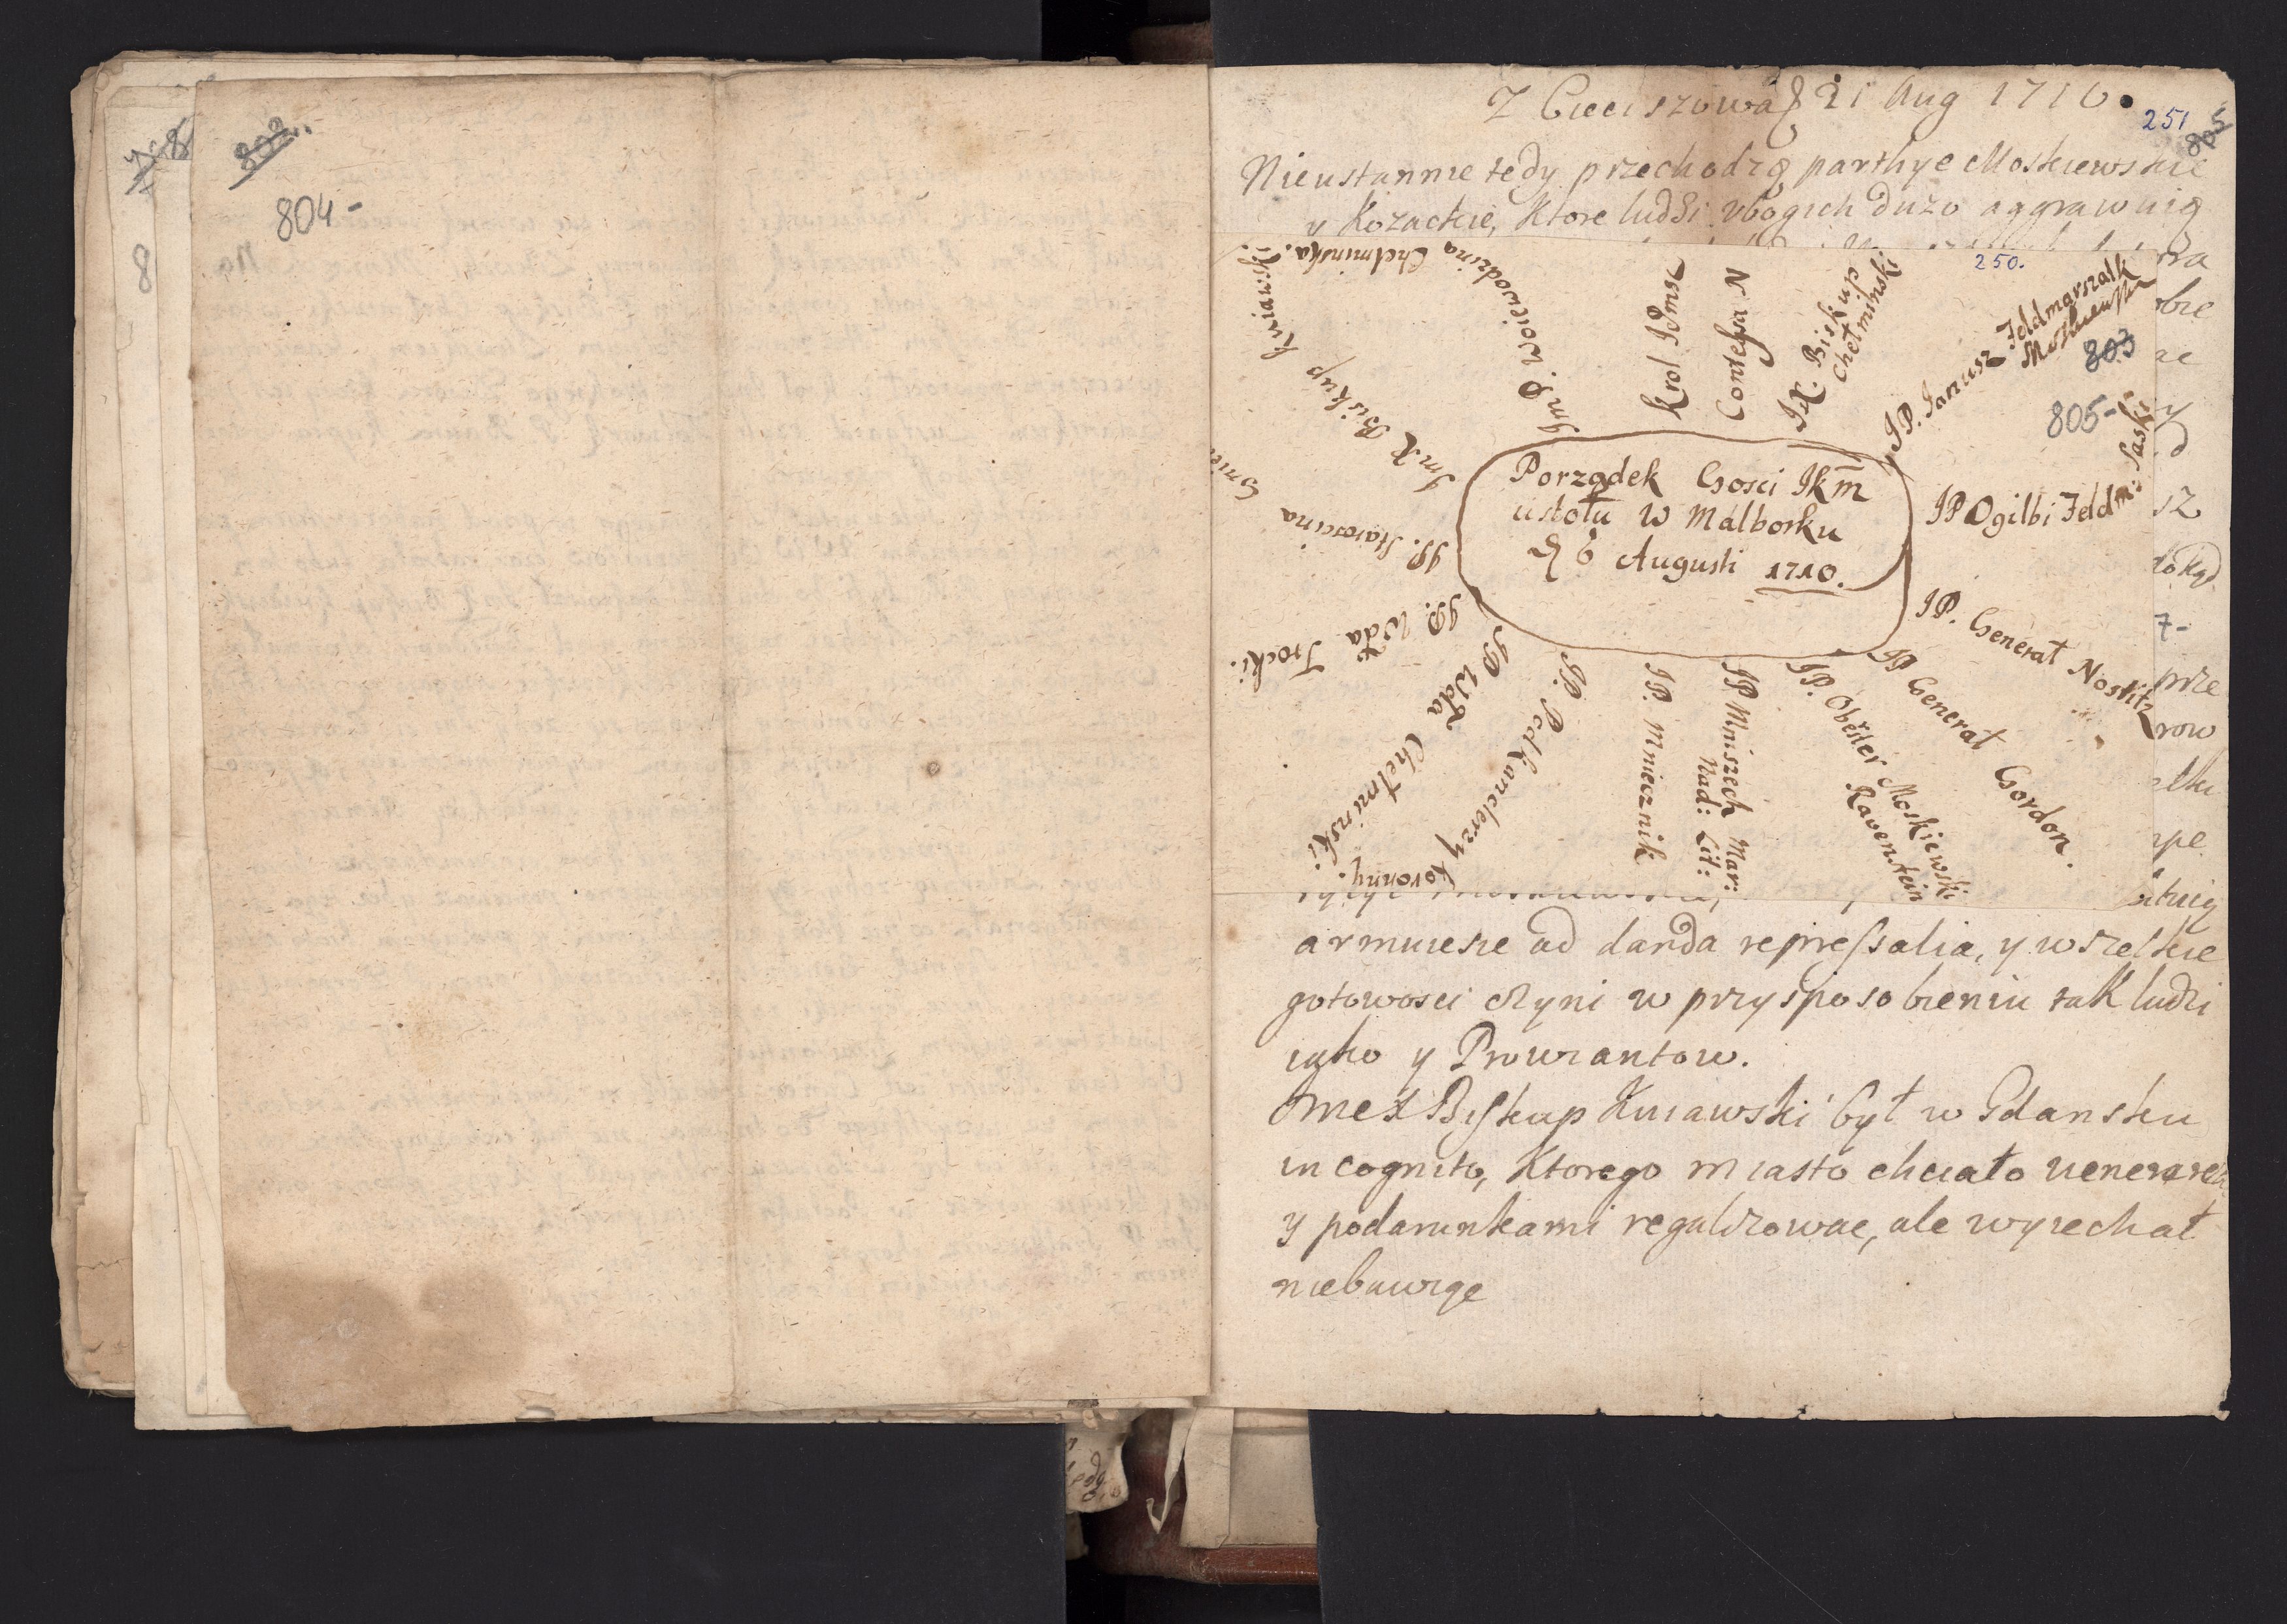 804-
8
Z Cieciszowa d 21 Aug 1710.
251
805
Nieustannie tedy przechodzą parthye Moskiewskie
y Kozackie, Ktore ludzi vbogich duzo aggrawuią
250.
803
805-
Porządek Gosci Jkm
u stołu w Malborku
d 6 Augusti 1710.
Krol Jmsc
Contessa N
JX. Biskup
Chełminski
JP. Janusz Feldmarszałk
Moskiewski
JP Ogilbi Feldm: Saski
JP. Generał Nostitz
JP Generał Gordon.
JP. Obester Moskiewski
Ravenstein
JP Mniszech Mar:
Nad: Lit:
JP. Miecznik
JP. Podkanclerzy Koronny.
JP Wda Chełminski.
JP. Wda Trocki.
JP. Starościna Gnie
JmX Biskup Kuiawski.
JmP. Woiewodzina Chełminska.
rra
bie
ze
y
d
sz
dokąd
7-
prze
row
łki
pe
tuią
armuiesie ad danda repressalia, y wszelkie
gotowosci czyni w przysposobieniu tak ludzi
iako y Prowiantow.
Jmex Biskup Kuiawski był w Gdansku
in cognito, Ktorego miasto chciało venerare
y podarunkami regalizowac, ale wyiechał
niebawiąc